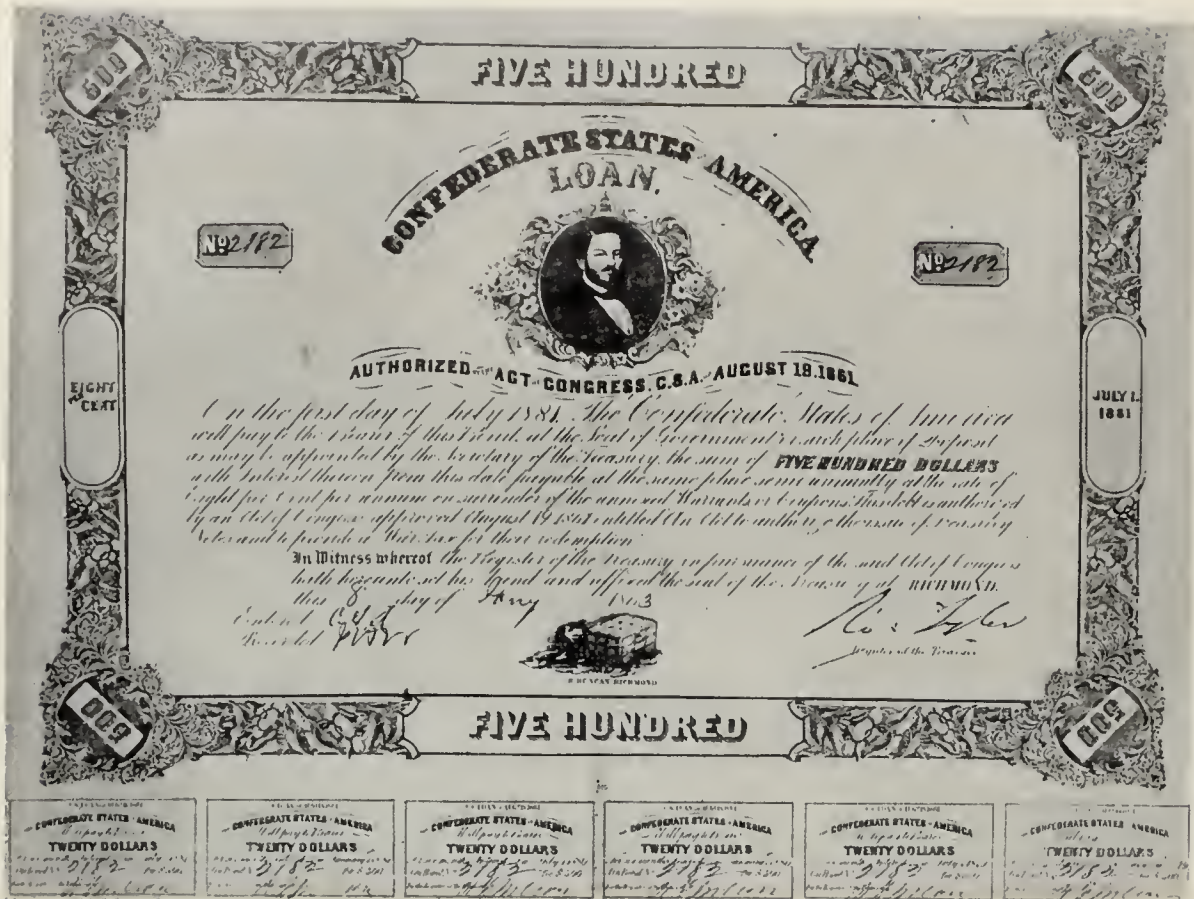 FIVE HUNDRED
500
500
CONFEDERATE STATES AMERICA
LOAN.
No 2182
No 2182
AUTHORIZED ACT OF CONGRESS. C.S.A. AUGUST 19.1861.
EIGHT
PER
CENT
JULY 1.
1881
On the first day of July 1881. The Confederate States of America
will pay to the bearer of this Bond. at the Seat of Government or such place of Deposit
as may be appointed by the Secretary of the Treasury, the sum of FIVE HUNDRED DOLLARS
with Interest thereon from this date payable at the same place semi annually at the rate of
Eight per Cent per annum on surrender of the annexed Warrants or Coupons. This debt is authorized
by an Act of Congress approved August 19 1861 entitled An Act to authorize the issue of Treasury
Notes and to provide a War Tax for their redemption
In Witness whereof the Register of the Treasury in pursuance of the said Act of Congress
hath hereunto set his hand and affixed the seal of the Treasury at RICHMOND.
this 8 day of Jany 1863
Entered
Recorded
Ro. Tyler
Register of the Treasury
B. DUNCAN RICHMOND
500
500
FIVE HUNDRED
CONFEDERATE STATES AMERICA
TWENTY DOLLARS
2182
CONFEDERATE STATES AMERICA
TWENTY DOLLARS
2182
CONFEDERATE STATES AMERICA
TWENTY DOLLARS
2182
CONFEDERATE STATES AMERICA
TWENTY DOLLARS
2182
CONFEDERATE STATES AMERICA
TWENTY DOLLARS
2182
CONFEDERATE STATES AMERICA
TWENTY DOLLARS
2182